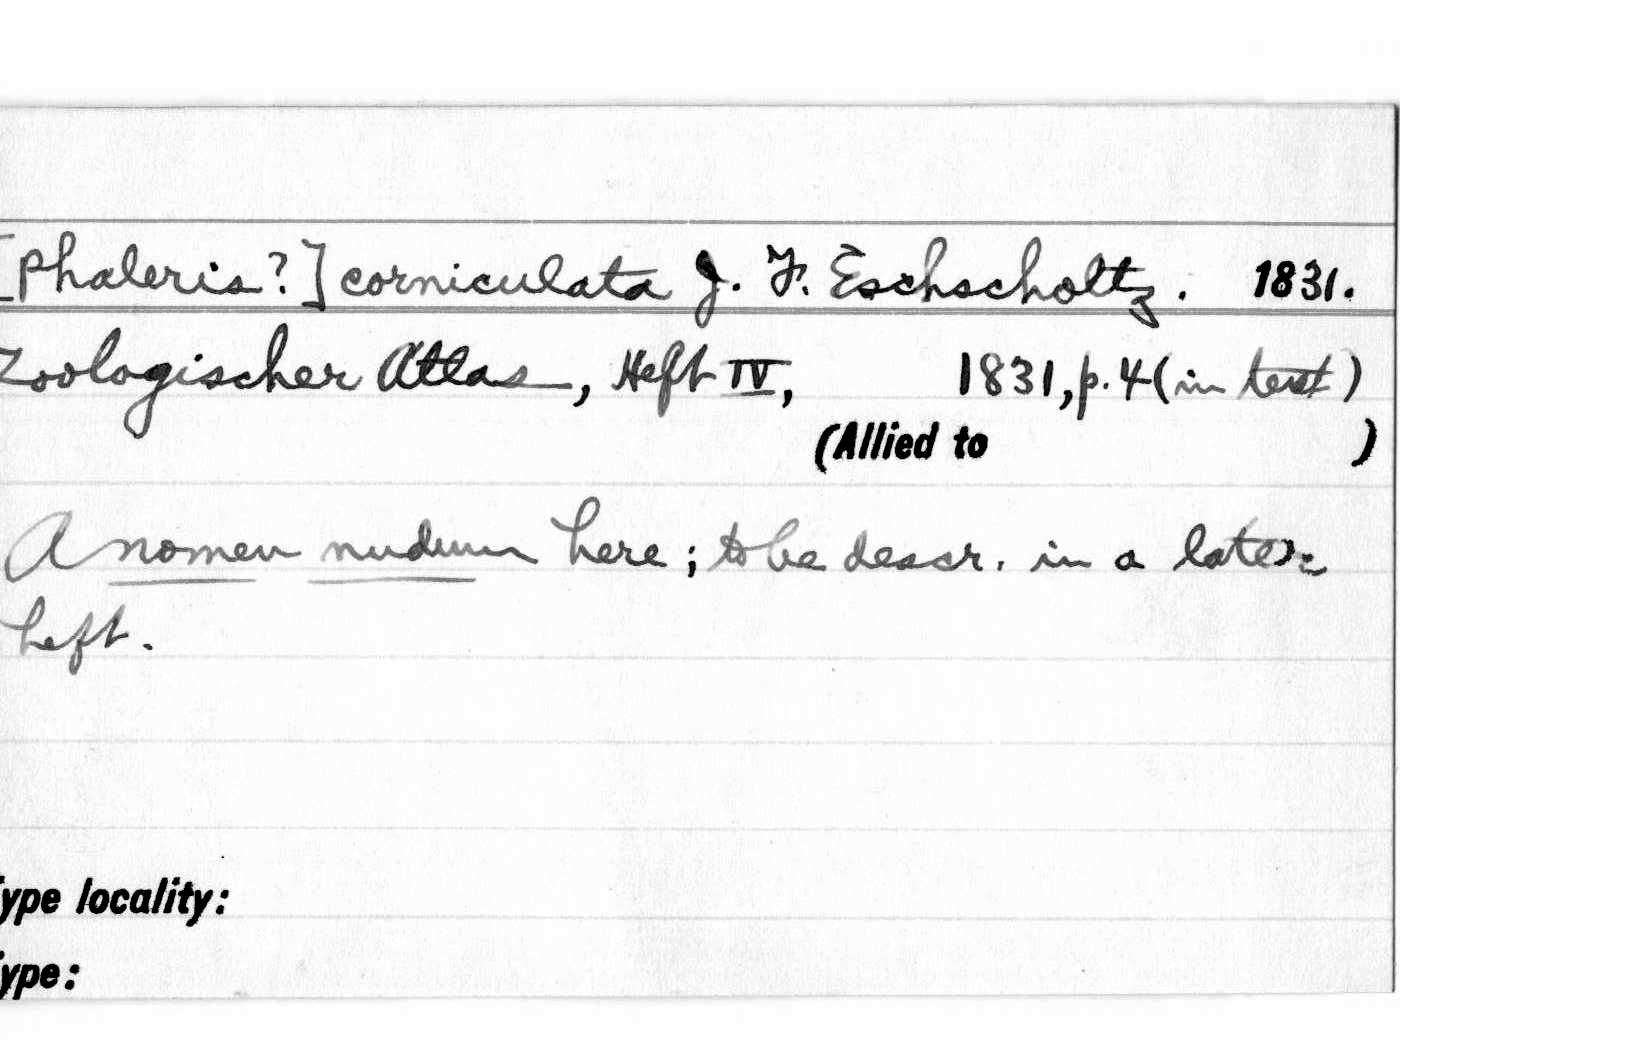 [Phaleris?] corniculata J. F. Eschscholtz. 1831.
Zoologischer Atlas, Heft IV, 1831, p. 4 (in text)
(Allied to )
A nomen nudum here; to be descr. in a later
heft.
ype locality:
ype: